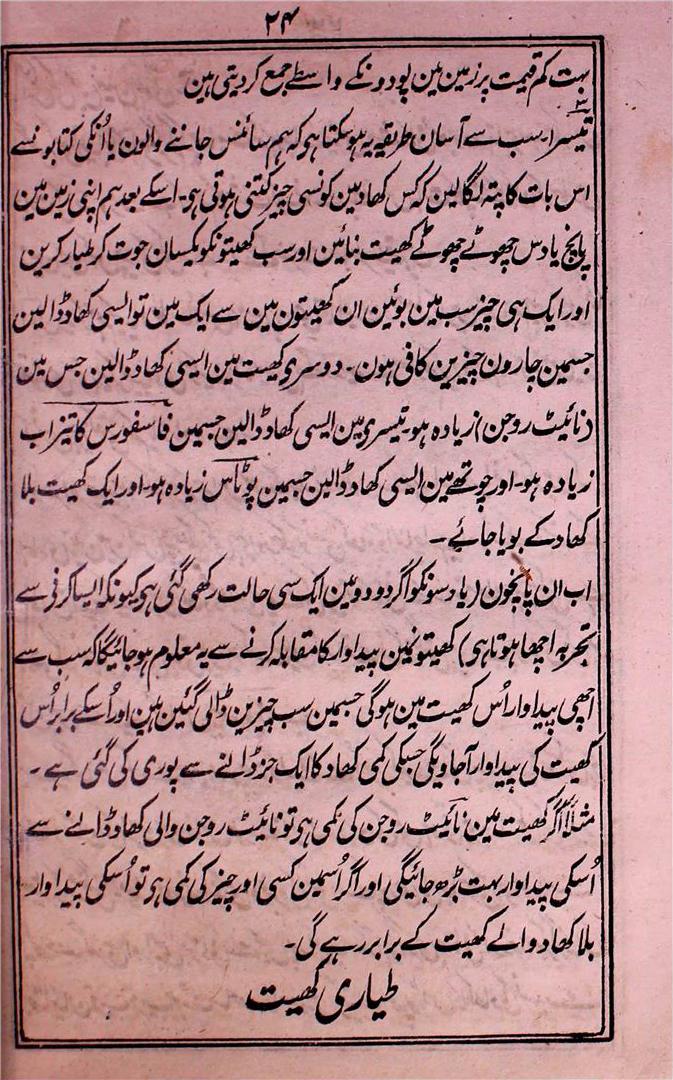 ۲۴
بہت کم قیمت پر زمین مین پودونکے واسطے جمع کر دیتی ہین
۳
تیسرا۔ سب سے آسان طریقہ یہ ہو سکتا ہو کہ ہم سائنس جاننے والون یا اُنکی کتابونسے
اس بات کا پتہ لگا لین کہ کس کھاد مین کونسی چیز کتنی ہوتی ہو۔ اسکے بعد ہم اپنی زمین مین
پانچ یا دس چھوٹے چھوٹے کھیت بنائین اور سب کھیتونکو یکسان جوت کر طیار کرین
اور ایک ہی چیز سب مین بوئین ان کھیتون مین سے ایک مین تو ایسی کھاد ڈالین
جسمین چارون چیزین کافی ہون۔ دوسرے کھیت مین ایسی کھاد ڈالین جس مین
(نائیٹ روجن) زیادہ ہو۔ تیسرے مین ایسی کھاد ڈالین جسمین فاسفورس کا تیزاب
زیادہ ہو۔ اور چوتھے مین ایسی کھاد ڈالین جسمین پوٹاس زیادہ ہو۔ اور ایک کھیت بلا
کھاد کے بویا جائے۔
اب ان پانچون (یا دسونکو اگر دو دو مین ایک سی حالت رکھی گئی ہو کیونکہ ایسا کرنے سے
تجربہ اچھا ہوتا ہی) کھیتونمین پیداوار کا مقابلہ کرنے سے یہ معلوم ہو جائیگا کہ سب سے
اچھی پیداوار اُس کھیت مین ہوگی جسمین سب چیزین ڈالی گئین ہین اور اُسکے برابر اُس
کھیت کی پیداوار آ جاویگی جسکی کمی کھاد کا ایک جز ڈالنے سے پوری کی گئی ہے۔
مثلاً اگر کھیت مین نائیٹ روجن کی کمی ہو تو نائیٹ روجن والی کھاد ڈالنے سے
اُسکی پیداوار بہت بڑھ جائیگی اور اگر اُسمین کسی اور چیز کی کمی ہو تو اُسکی پیداوار
بلا کھاد والے کھیت کے برابر رہے گی۔
طیاری کھیت